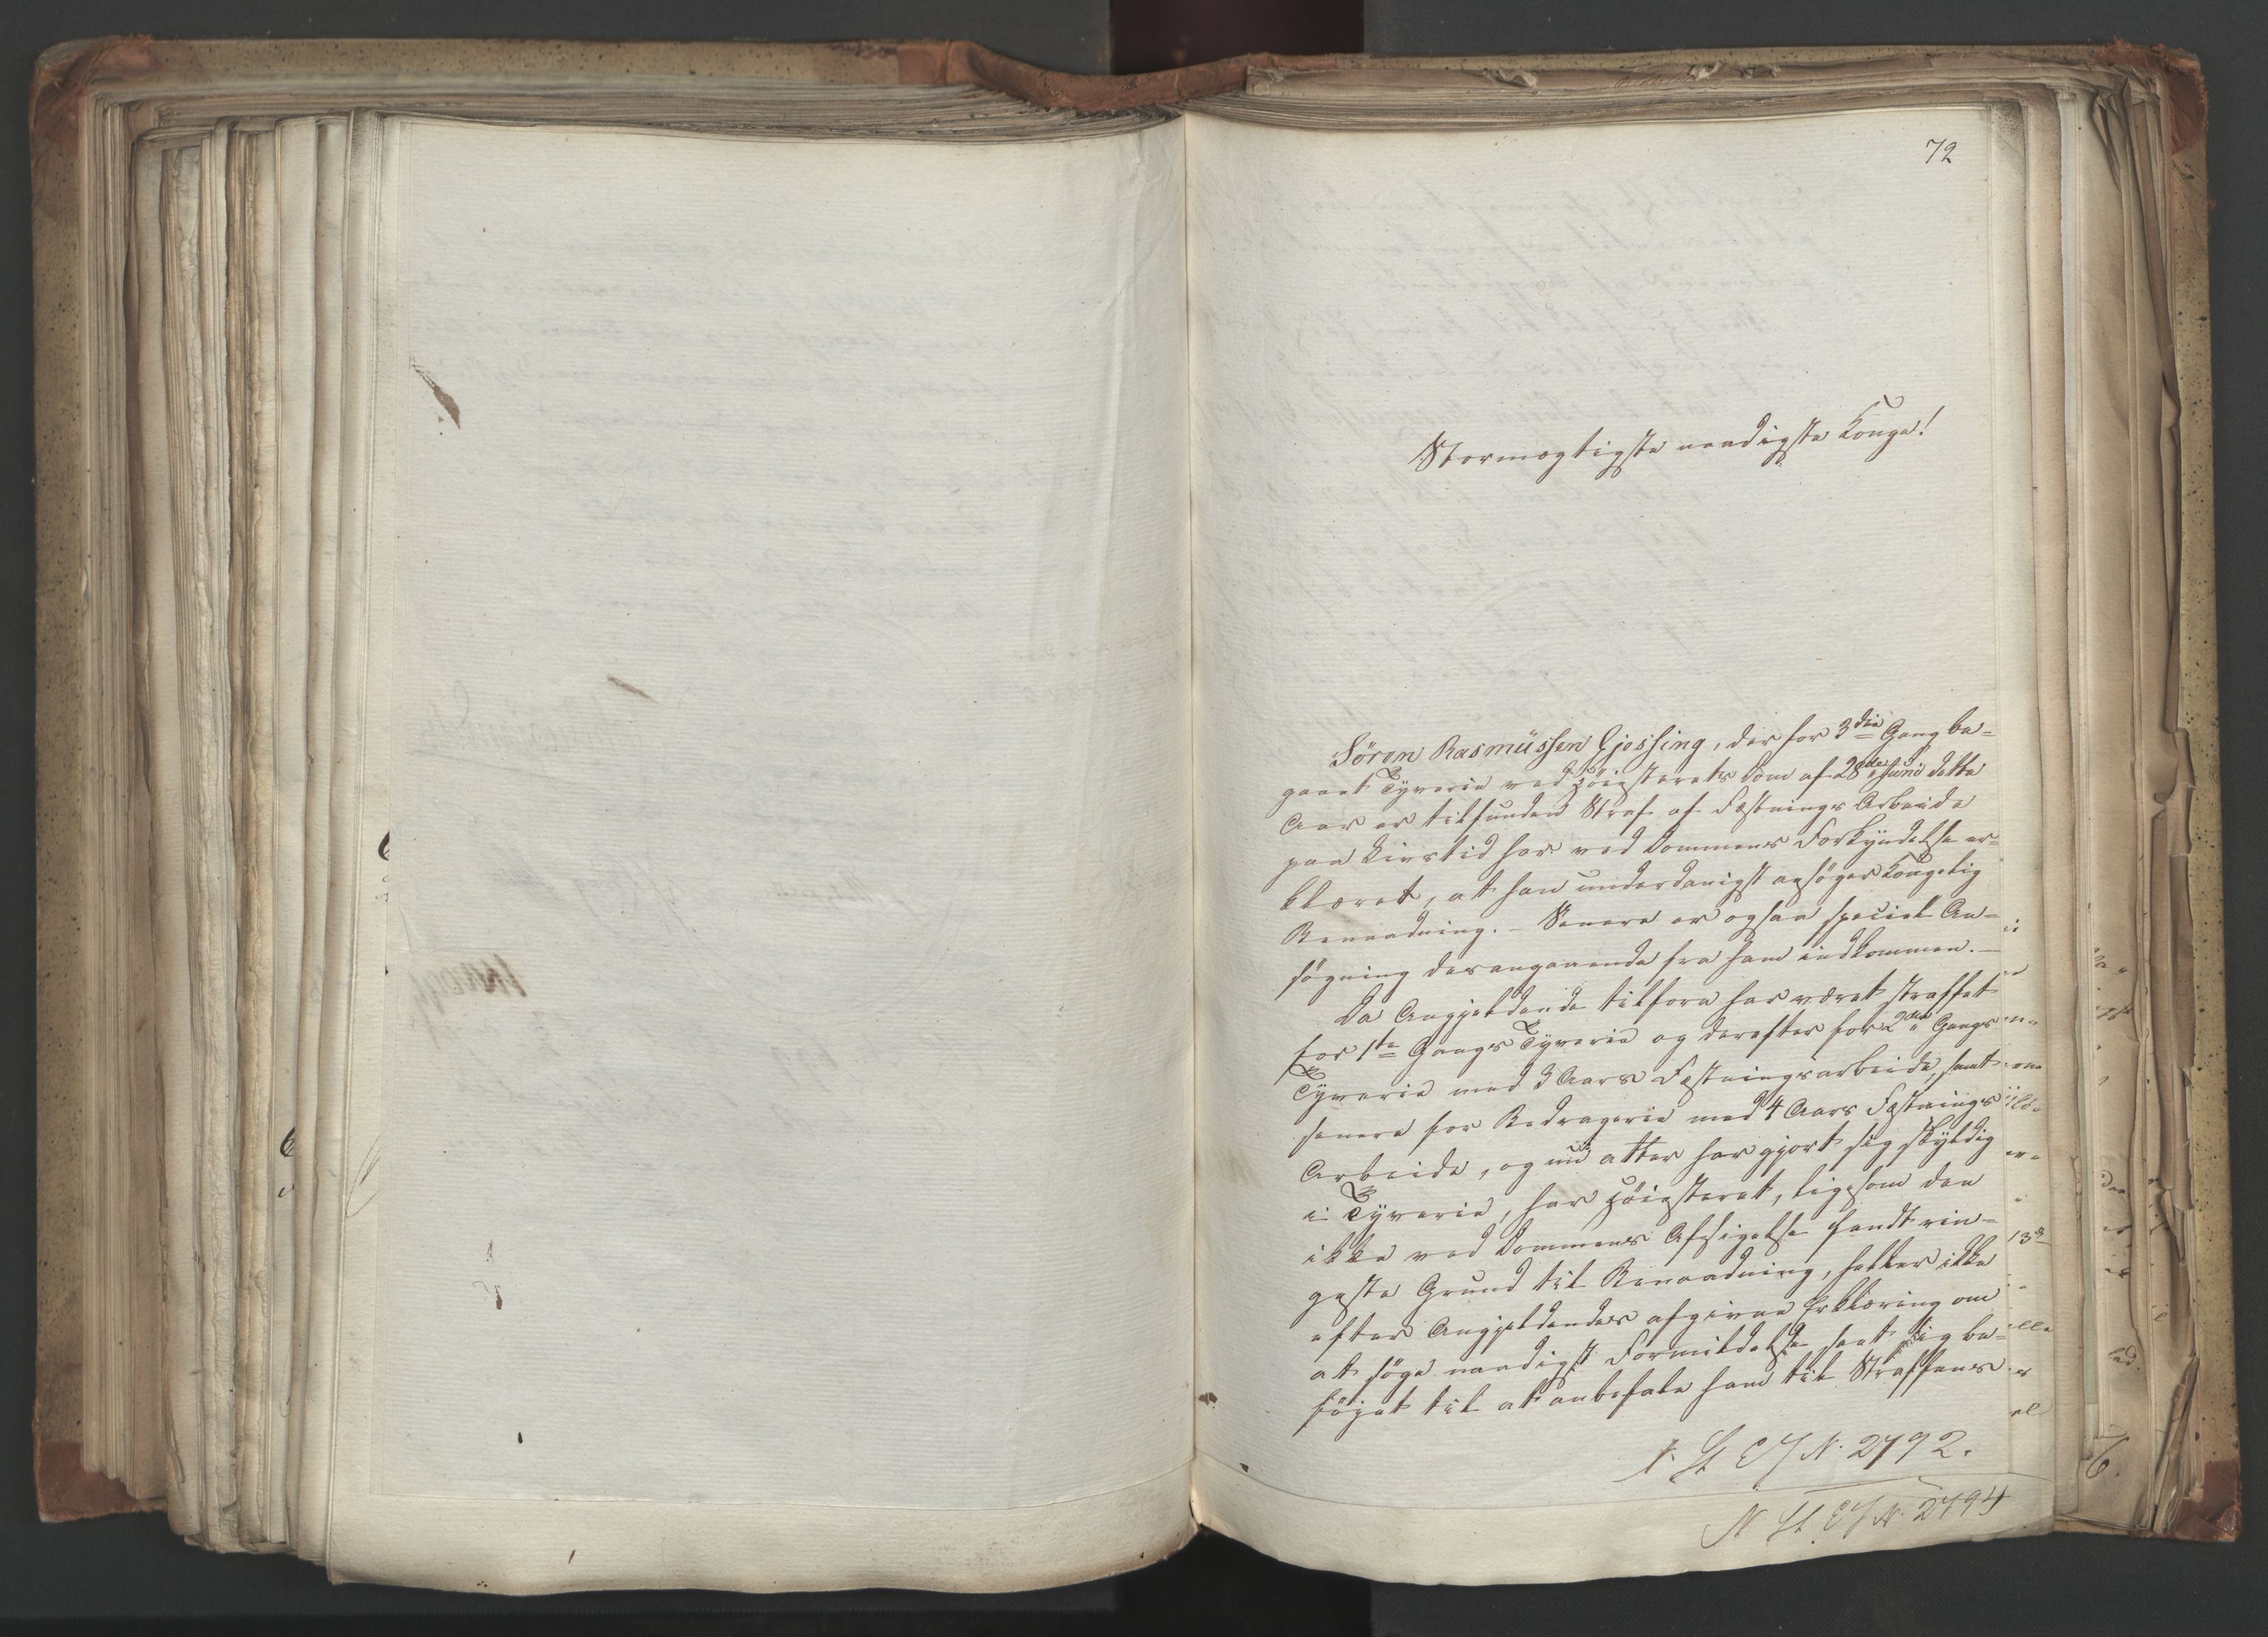 72
Stormægtigste naadigste Konge!
Sören Rasmüssen Gjessing, der for 3die Gang be-
gaaet Tyverie ved Höiesterets Dom af 28de Juni dette
Aar er tilfunden Straf af Fæstnings Arbeide
paa Livstid har ved Dommens Forkyndelse er-
klæret, at han underdanigst ansöger Kongelig
Benaadning. – Senere er ogsaa speciel An-
søgning desangaaende fra ham indkommen. –
Da Angjeldende tilforn har været straffet
for 1ste Gangs Tyverie og derefter for 2den Gangs
Tyverie med 3 Aars Fæstningsarbeide, samt
senere for Bedragerie med 4 Aars Fæstnings
Arbeide, og nu atter har gjort sig skyldig
i Tyverie, har Höiesteret, ligesom den
ikke ved Dommens Afsigelse fandt rin-
geste Grund til Benaadning, heller ikke
efter Angjeldendes afgivne Erklæring om
at söge naadigst Formildelse seet sig be-
föjet til at anbefale ham til Straffens
N. St. E / N. 2792.
N St. E / N. 2794